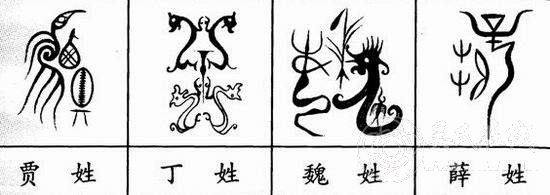 贾 姓 丁 姓 魏 姓 薛 姓